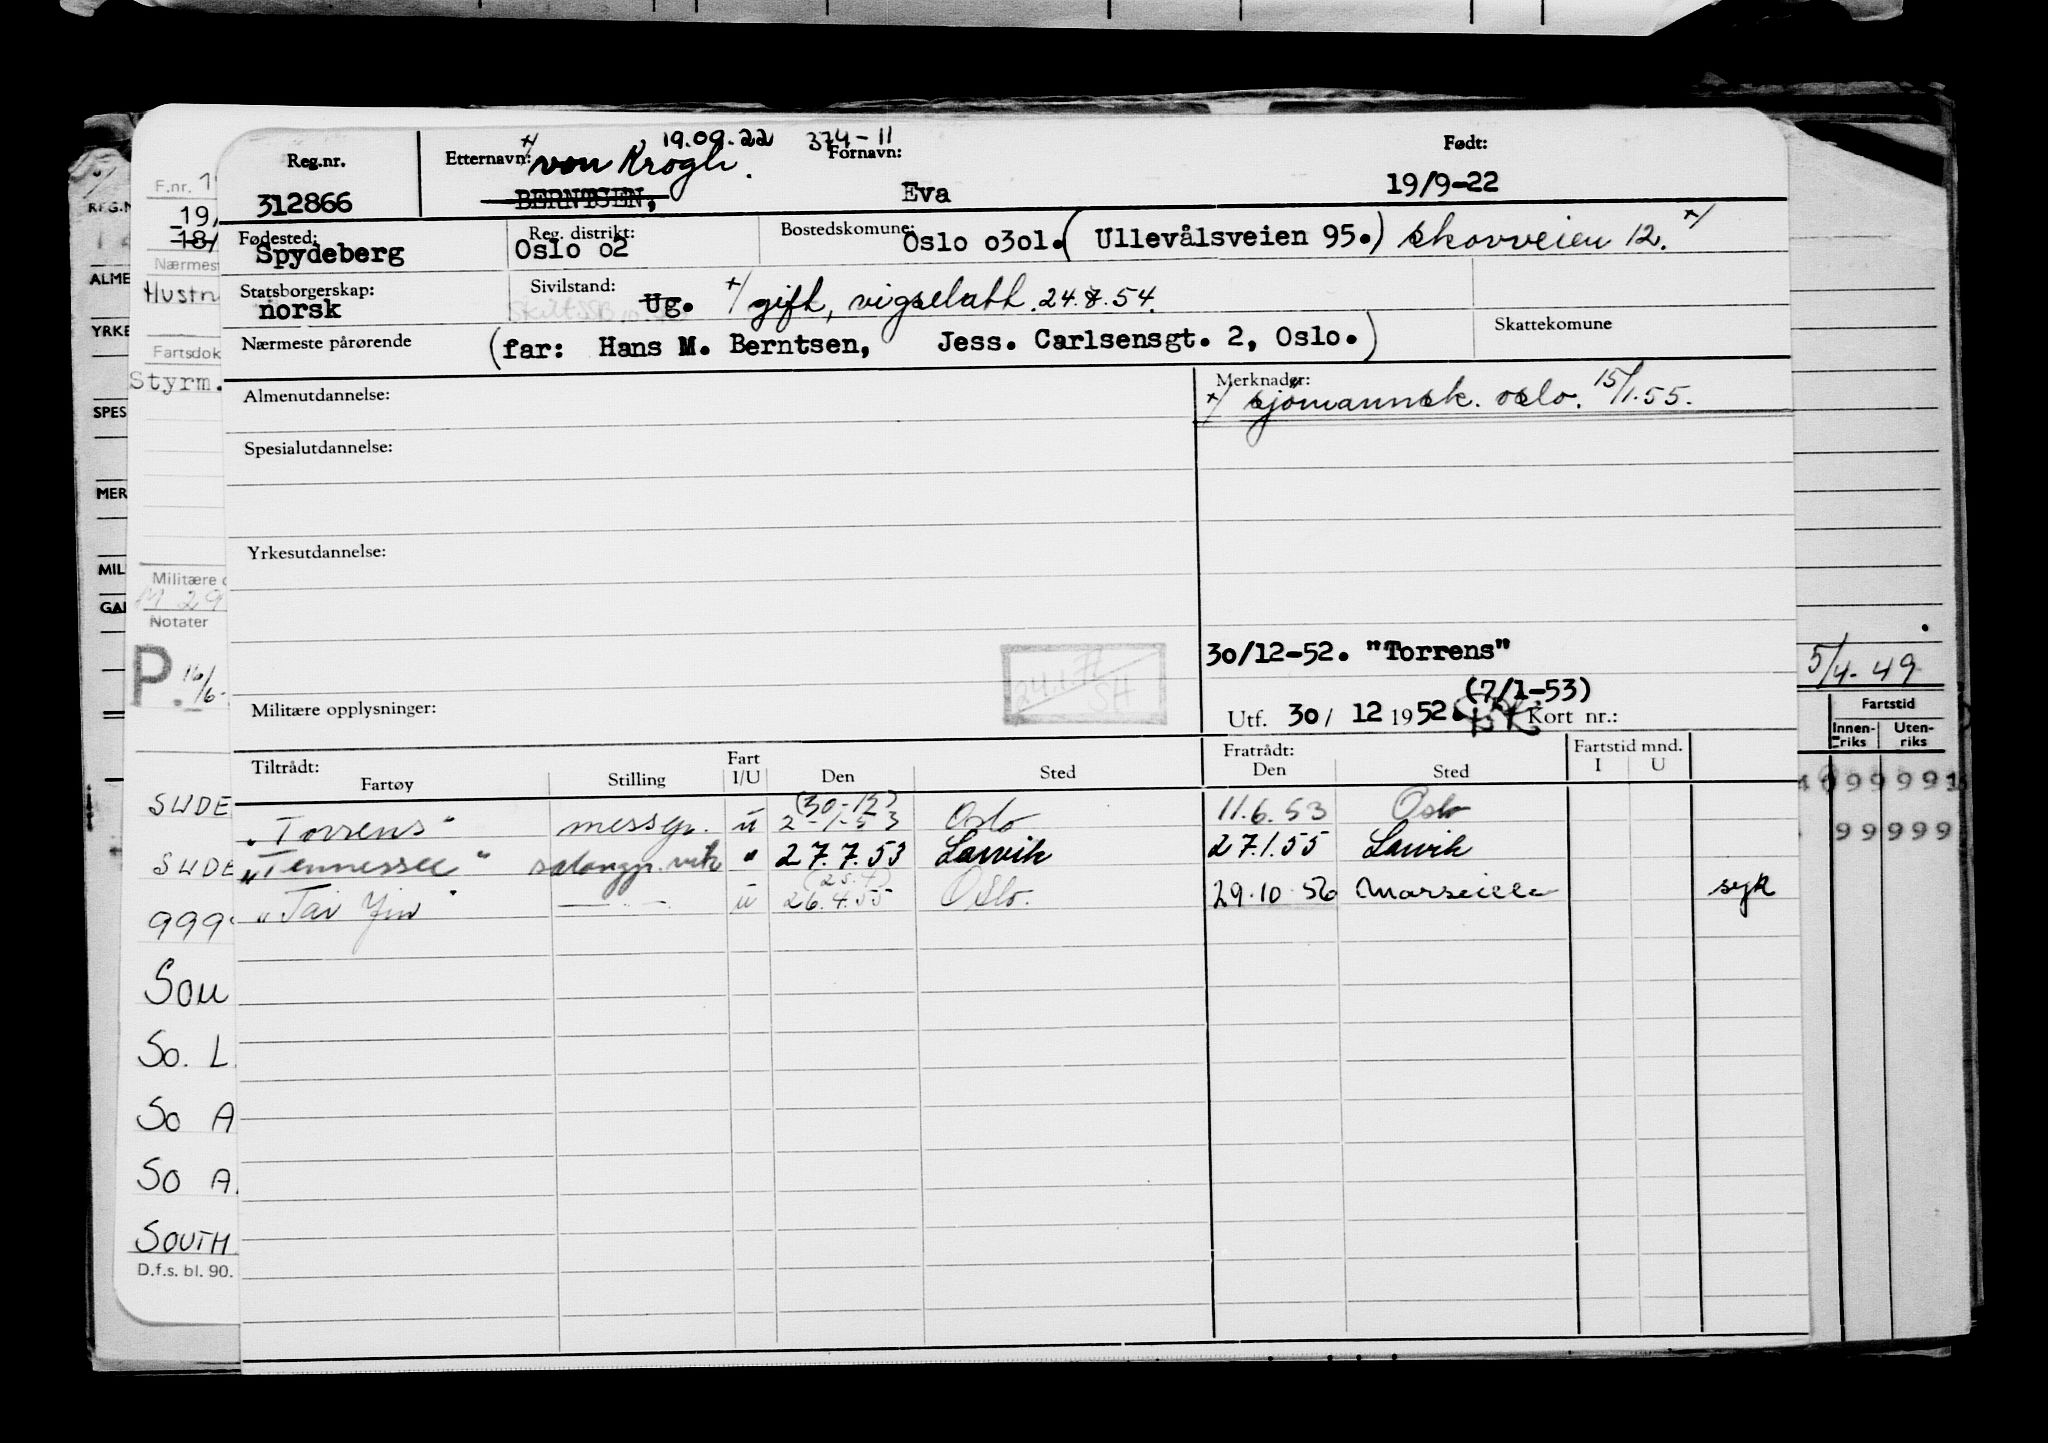 19.09.22 374-11
Reg.nr. Etternavn: x/ von Krogh. Fornavn: Født:
312866 BERNTSEN, Eva 19/9-22
Fødested: Reg. distrikt: Bostedskomune:
Spydeberg Oslo o2 Oslo o3o1. (Ullevålsveien 95.) Skovveien 12. x/
Statsborgerskap: Sivilstand:
norsk Ug. x/ gift, vigselatt. 24.8.54.
Nærmeste pårørende (far: Hans M. Berntsen, Jess. Carlsensgt. 2, Oslo.) Skattekomune
Almenutdannelse: Merknader:
x/ sjömannsk. oslo. 15/1.55.
Spesialutdannelse:
Yrkesutdannelse:
30/12-52. "Torrens"
24.1.71
SH
(7/1-53)
Militære opplysninger: Utf. 30/ 12 1952. Kort nr.:
Tiltrådt: Fart Fratrådt: Fartstid mnd.
Fartøy Stilling I/U Den Sted Den Sted I U
(30-12)
"Torrens" messgp. u 2-1-53 Oslo 11.6.53 Oslo
"Tennessee" salongp. vik " 27.7.53 Larvik 27.1.55 Larvik
(25.4)
"Tai Yin" —"— u 26.4.55 Oslo. 29.10.56 Marseille syk
REG.N
ALME
YRKE
SPES
MER
MIL
F.nr. 1
19/
18/
Nærmest
Hustr
Fartsdok
Styrm.
Militære
M 29
Notater
P. 16/6-
SUDE
SUDE
999
SOU
So. L.
So A
So A.
SOUTH
D.f.s. bl. 90.
5/4-49
Fartstid
Innen-riks Uten-riks
99999
99999